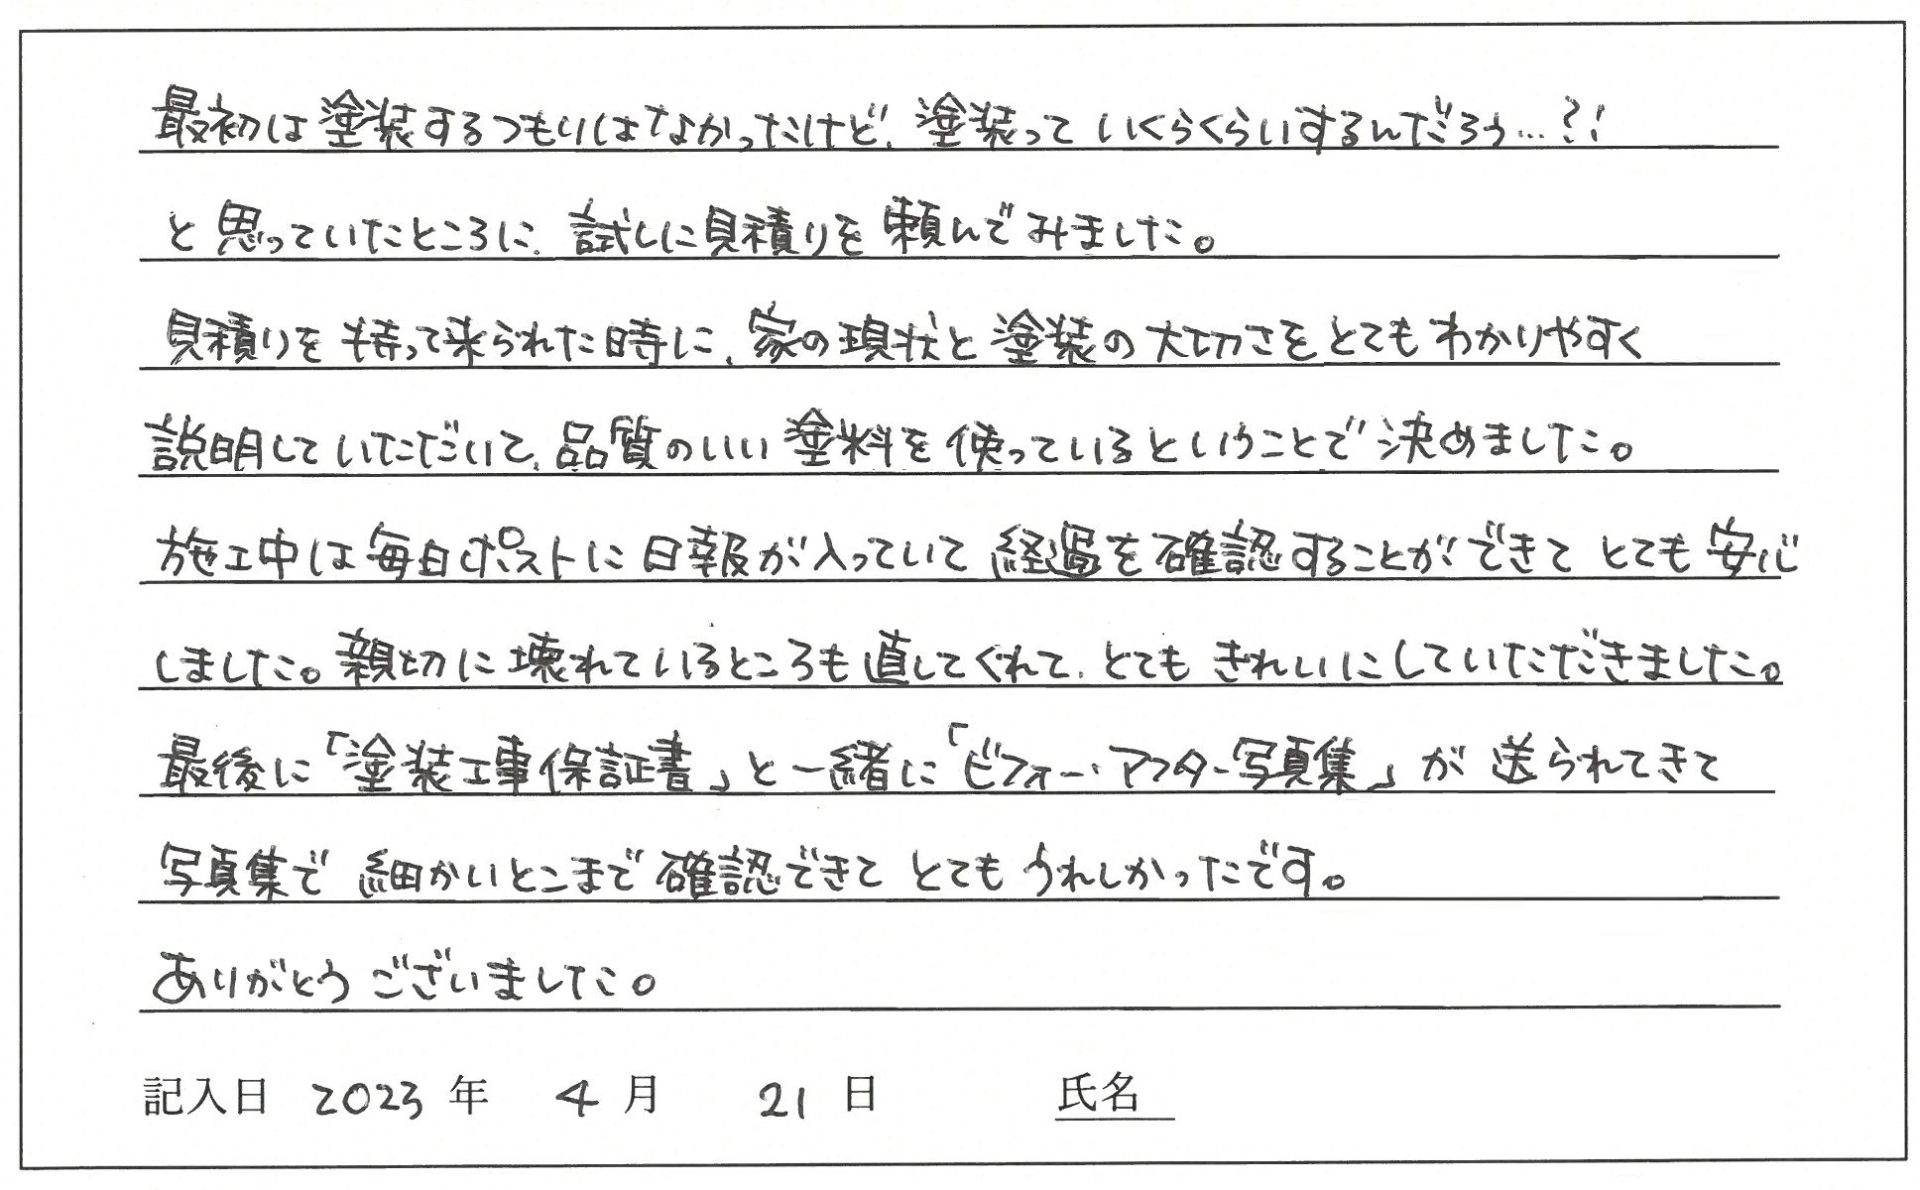 最初は塗装するつもりはなかったけど、塗装って いくらくらいするんだろう…?!
と思っていたところに、試しに見積りを頼んでみました。
見積りを持って来られた時に、家の現状と塗装の大切さをとてもわかりやすく
説明していただいて、品質のいい塗料を使っているということで決めました。
施工中は毎日ポストに日報が入っていて経過を確認することができてとても安心
しました。親切に壊れているところも直してくれて、とてもきれいにしていただきました。
最後に「塗装工事保証書」と一緒に「ビフォー・アフター写真集」が送られてきて
写真集で細かいとこまで確認できてとてもうれしかったです。
ありがとうございました。
記入日 2023 年 4 月 21 日 氏名